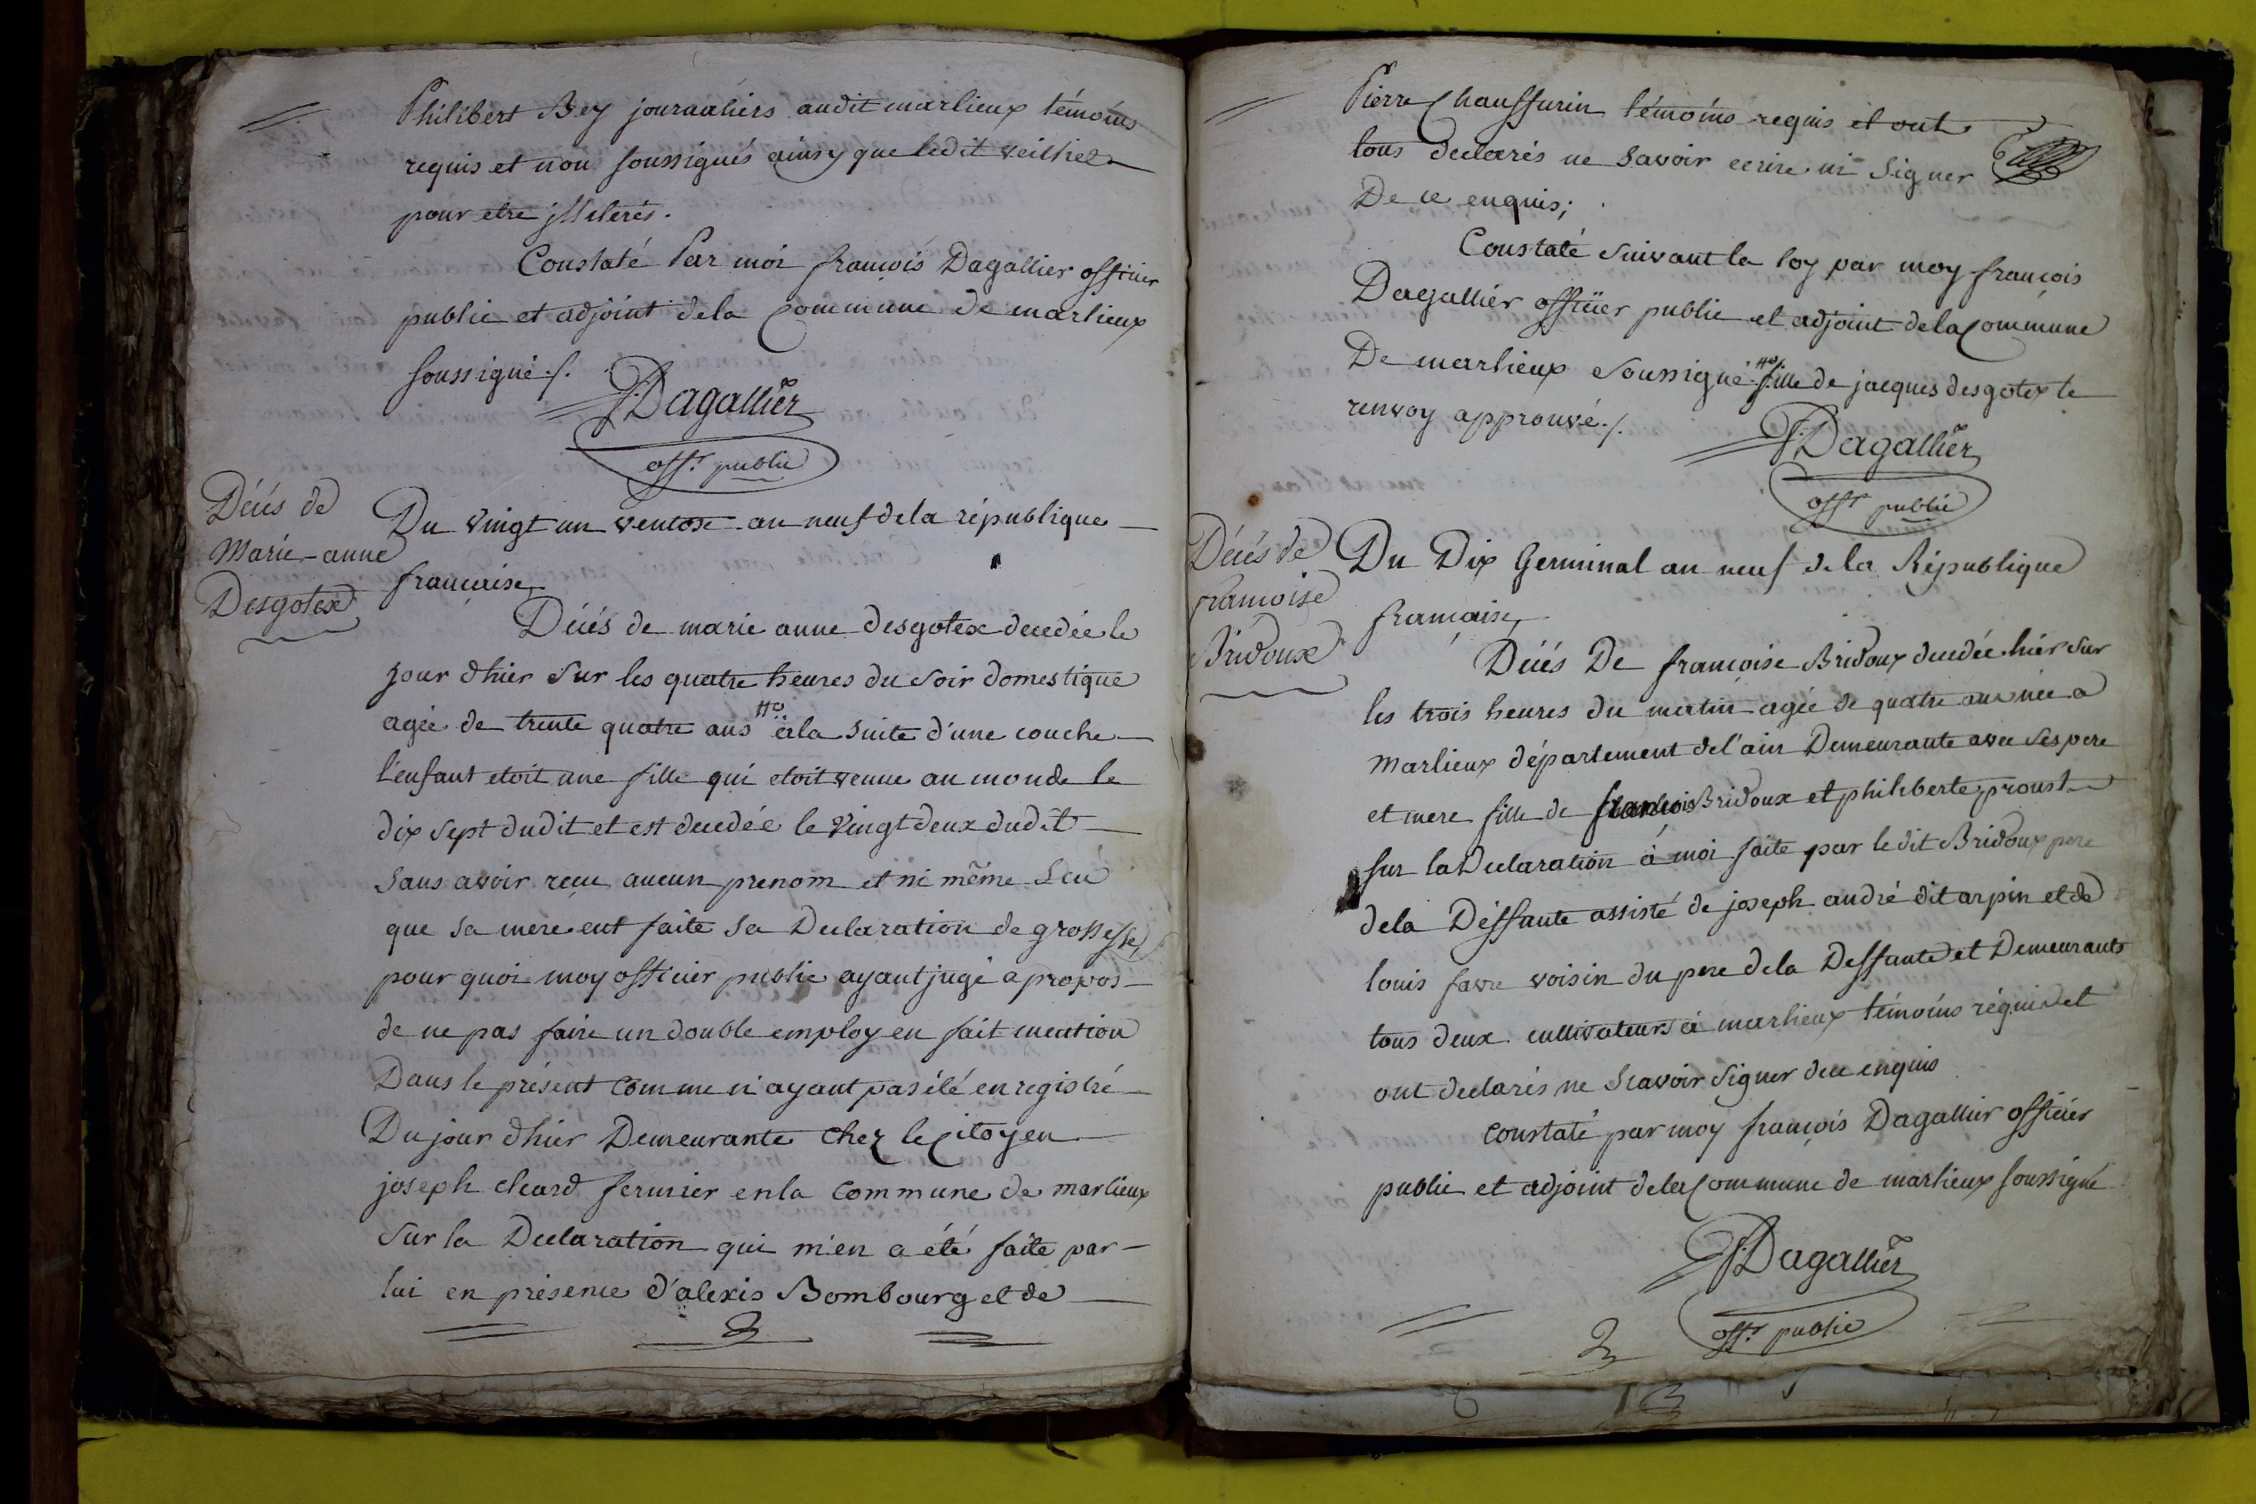 Philibert Bey journaliers audit marlieux témoins
requis et non soussignés ainsy que ledit veilhet
pour etre jlleterés.
Constaté Par moi francois Dagallier officier
public et adjoint dela Commune de marlieux
soussigné ./.
F. Dagallier
offr. public
Décés de
Marie-anne
Desgotex
Du vingt un ventose an neuf dela république
française
Décés de marie anne desgotex decedée le
jour d'hier sur les quatre heures du soir domestique
agée de trente quatre ans à la suite d'une couche
l'enfant etoit une fille qui etoit venue au monde le
dix sept dudit et est decedée le vingt deux dudit
sans avoir reçu aucun prenom et ni même
que sa mere eut faite sa Declaration de grossesse
pour quoi moy officier public ayant jugé a propos
de ne pas faire un double employ en fait mention
Dans le présent comme n'ayant pas été enregistré
Du jour d'hier Demeurante chez le Citoyen
joseph cleard fermier en la Commune de marlieux
sur la Declaration qui m'en a été faite par
lui en présence d'alexis Bombourg et de
Pierre Chaussurin témoins requis et ont
tous declarés ne savoir ecrire ni signer
De ce enquis;
Constaté suivant la loy par moy françois
Dagallier officier public et adjoint dela Commune
De marlieux soussigné ./. fille de jacques desgotex le
renvoy approuvé ./.
F. Dagallier
offr. public
Décés de
francoise
Bridoux
Du Dix Germinal an neuf de la République
française
Décés De francoise Bridoux decedée hier sur
les trois heures du matin agée de quatre ans née a
Marlieux département de l'ain Demeurante avec ses pere
et mere fille de Bridoux et philiberte proust
sur la Declaration à moi faite par le dit Bridoux pere
dela Déffante assisté de joseph andré dit arpin et de
louis favre voisin du pere dela Deffante et Demeurants
tous deux cultivateurs à marlieux témoins réquis et
ont declarés ne scavoir signer de ce enquis
Constaté par moy françois Dagallier officier
public et adjoint dela Commune de marlieux soussigné
F. Dagallier
offr. public